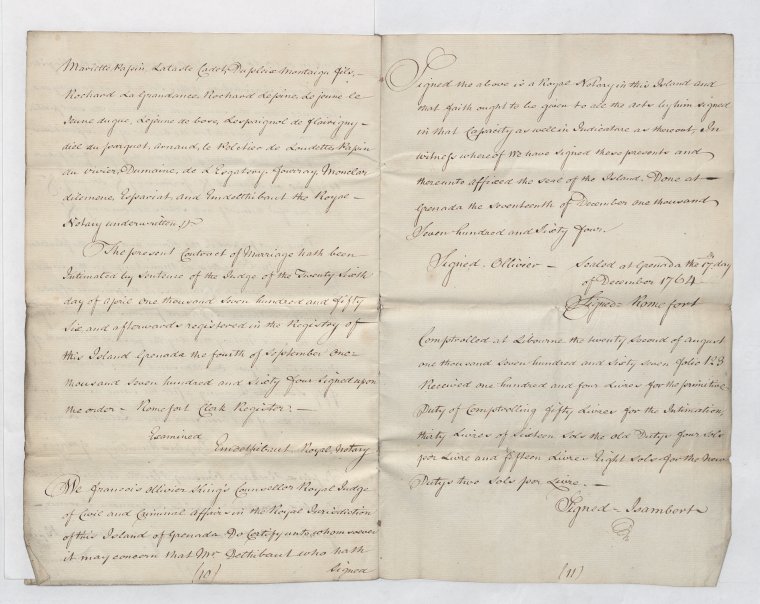 Mariette Papin, Lataste Cadet, Duplois Montaign fils,
Rochard La Grandance, Rochard Lepine, Lejeune le
Jeune duque, Lejeune de bove, Lespaignol de flavigny
diel du parquet, Arnaud, le Peletier de Loudette, Papin
au vivier, Dumaine, de Fourray, Monclar
dilemene, Espariat, and Emdelthibaut the Royal
Notary underwritten
The present Contract of Marriage hath been
Intimated by Sentence of the Judge of the Twenty Sixth
day of April one thousand Seven hundred and fifty
Six and afterwards registered in the Registry of
this Island Grenada the fourth of September One
thousand Seven hundred and Sixty four Signed upon
the order - Romefort Clerk Register. -
Examined
Royal Notary
We francois Ollivier King's Counsellor Royal Judge
of Civil and Criminal Affairs in the Royal Jurisdiction
of this Island of Grenada Do Certify unto whom soever
it may concern that Mr. Delthibaut who hath
Signed
(10)
Signed the above is a Royal Notary in this Island and
that faith ought to be given to all the acts by him signed
in that Capacity as well in Judicature as thereout, In
witness whereof We have signed these presents and
thereunto affixed the seal of the Island. Done at
Grenada the Seventeenth of December one thousand
Seven hundred and Sixty four
Signed - Ollivier - Sealed at Grenada the 17th. day
of December 1764
Signed - Romefort
Comptrolled at Libourne the twenty Second of August
one thousand Seven hundred and Sixty Seven folio 128
Received one hundred and four Livres for the primitive
Duty of Comptrolling fifty Livres for the Intimation,
thirty Livres of Sixteen Sols the Old Dutys four Sols
per Livre and fifteen Livres Eight Sols for the New
Dutys two Sols per Livre. -
Signed - Isambert
(11)